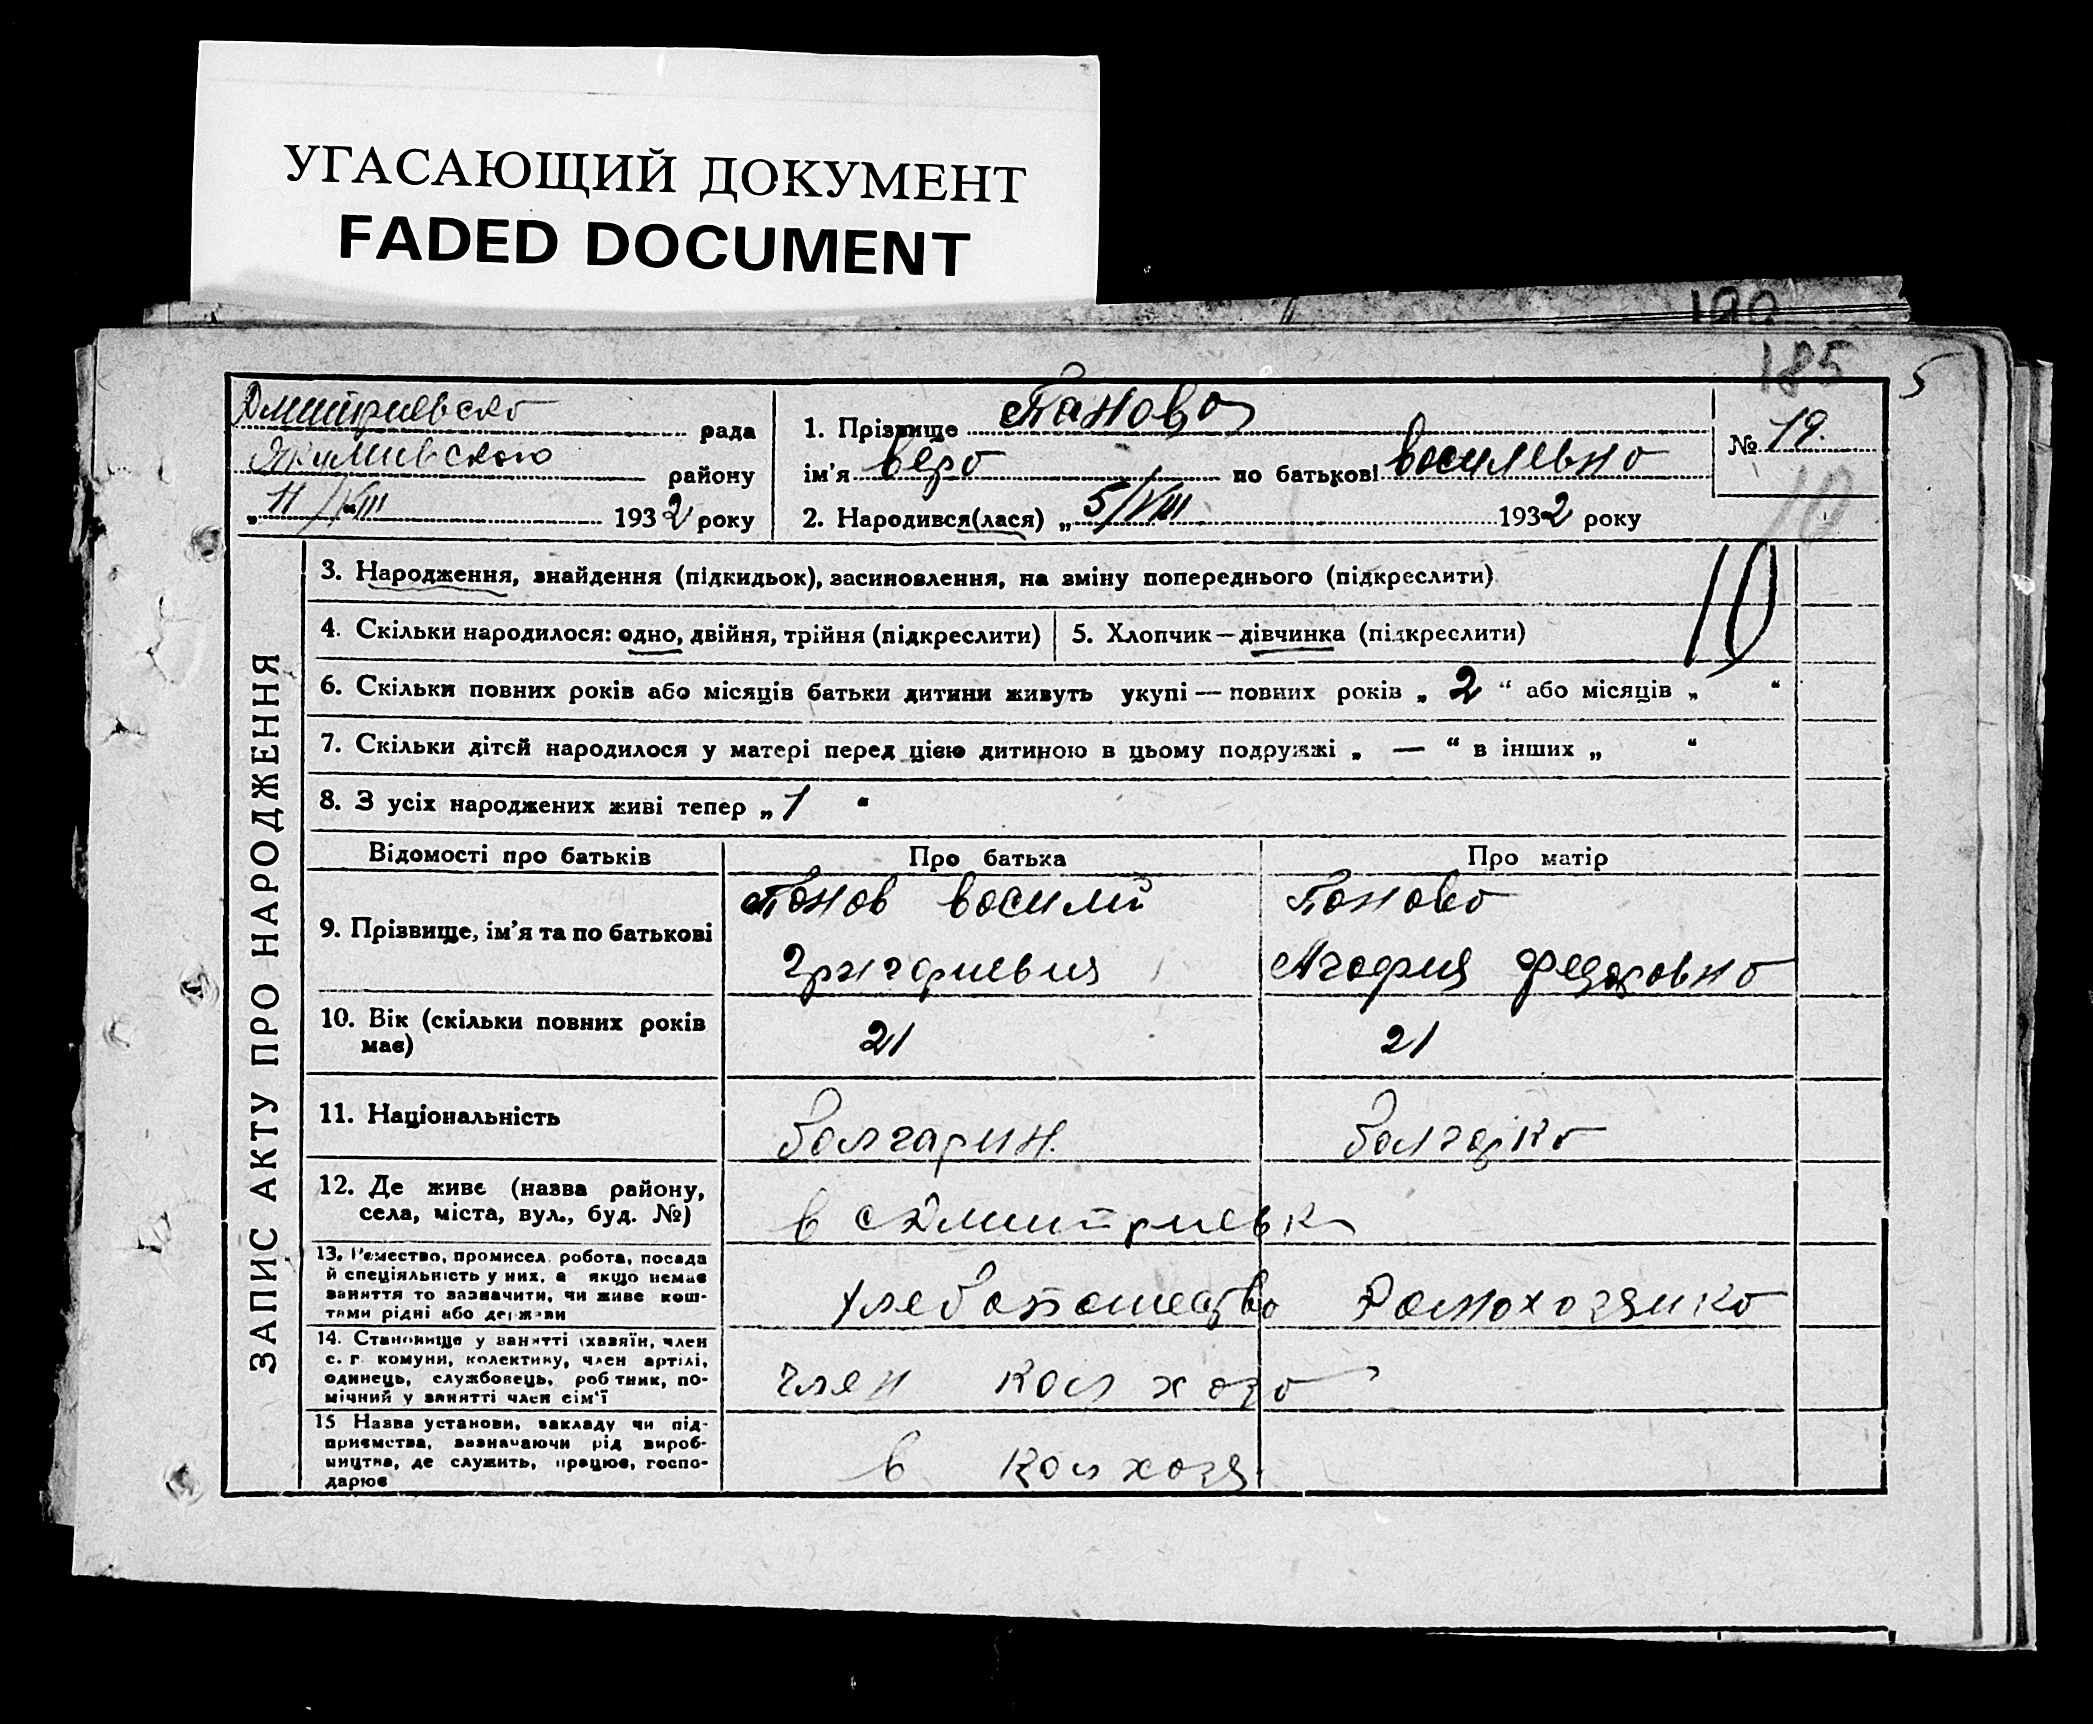 УГАСАЮЩИЙ ДОКУМЕНТ
FADED DOCUMENT
190
185 5
Дмитриевска рада
району
„11/VIII 1932 року
1. Прізвище Танова
ім'я вера по батькові василевна
2. Народився(лася) „5/VIII 1932 року
№ 19.
10
10
ЗАПИС АКТУ ПРО НАРОДЖЕННЯ
3. Народження, знайдення (підкидьок), засиновлення, на зміну попереднього (підкреслити)
4. Скільки народилося: одно, двійня, трійня (підкреслити) 5. Хлопчик—дівчинка (підкреслити)
6. Скільки повних років або місяців батьки дитини живуть укупі — повних років „ 2 “ або місяців „ “
7. Скільки дітей народилося у матері перед цією дитиною в цьому подружжі „ — “ в інших „ “
8. З усіх народжених живі тепер „ 1 “
Відомості про батьків Про батька Про матір
9. Прізвище, ім'я та по батькові
Танов василий Танова
Григориевич Агафия федоровна
10. Вік (скільки повних років
має)
21 21
11. Національність
болгарин. болгарка
12. Де живе (назва району,
села, міста, вул., буд. №)
в с Дмитриевк
13. Ремество, промисел. робота, посада
й спеціяльність у них, а якщо немає
заняття то зазначити, чи живе кош-
тами рідні або держави
хлебопашество Домохозяйка
14. Становище у занятті (хазяїн, член
с. г. комуни, колективу, член артілі,
одинець, службовець, робітник, по-
мічний у занятті член сім'ї
член колхоза
15 Назва установи, закладу чи під-
приємства, зазначаючи рід вироб-
ництва, де служить, працює, госпо-
дарює
в колхозе